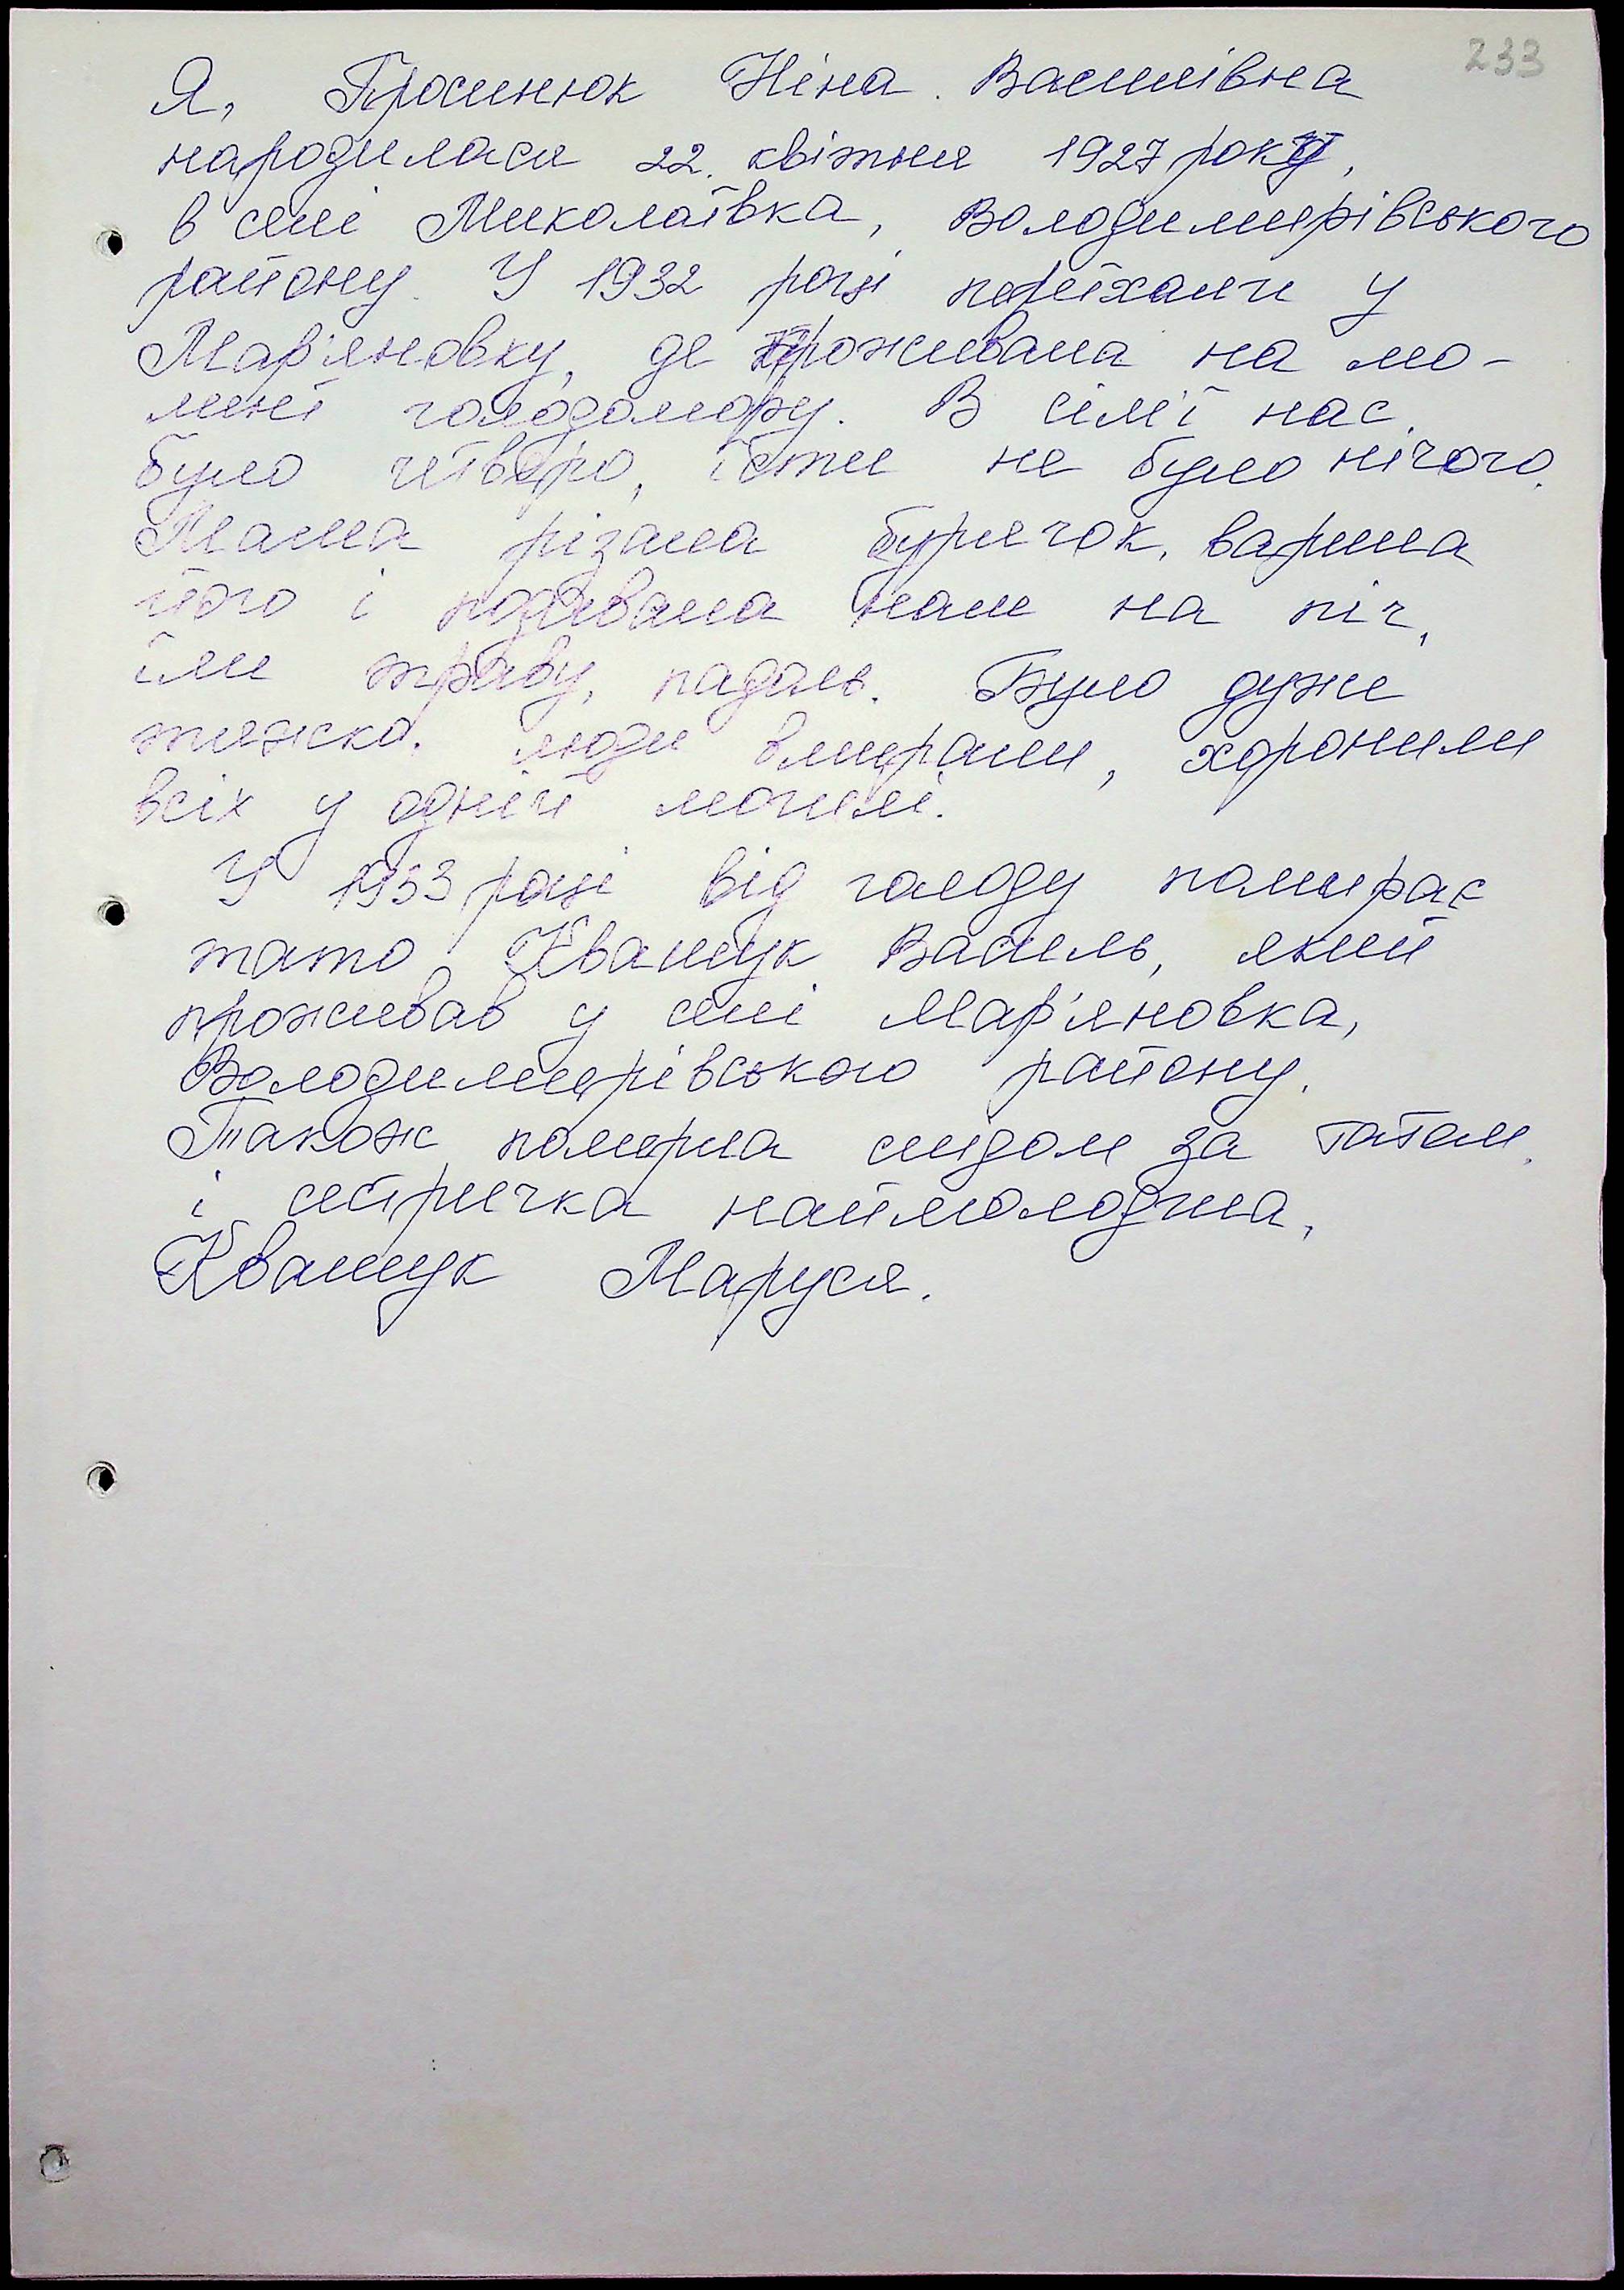 233
Я, Просинюк Ніна Василівна
народилася 22. квітня 1927 року,
в селі Миколаївка, Володимирівського
району. У 1932 році переїхали у
Мар'яновку, де проживала на мо-
мент голодомору. В сім'ї нас
було четверо, їсти не було нічого.
Мама різала бурячок, варила
його і подавала нам на піч,
їли траву, падаль. Було дуже
тяжко. люди вмирали, хоронили
всіх у одній могилі.
У 1933 році від голоду помирає
тато Квашук Василь, який
проживав у селі Мар'яновка,
Володимирівського району.
Також померла слідом за татом
і сестричка наймолодша,
Квашук Маруся.